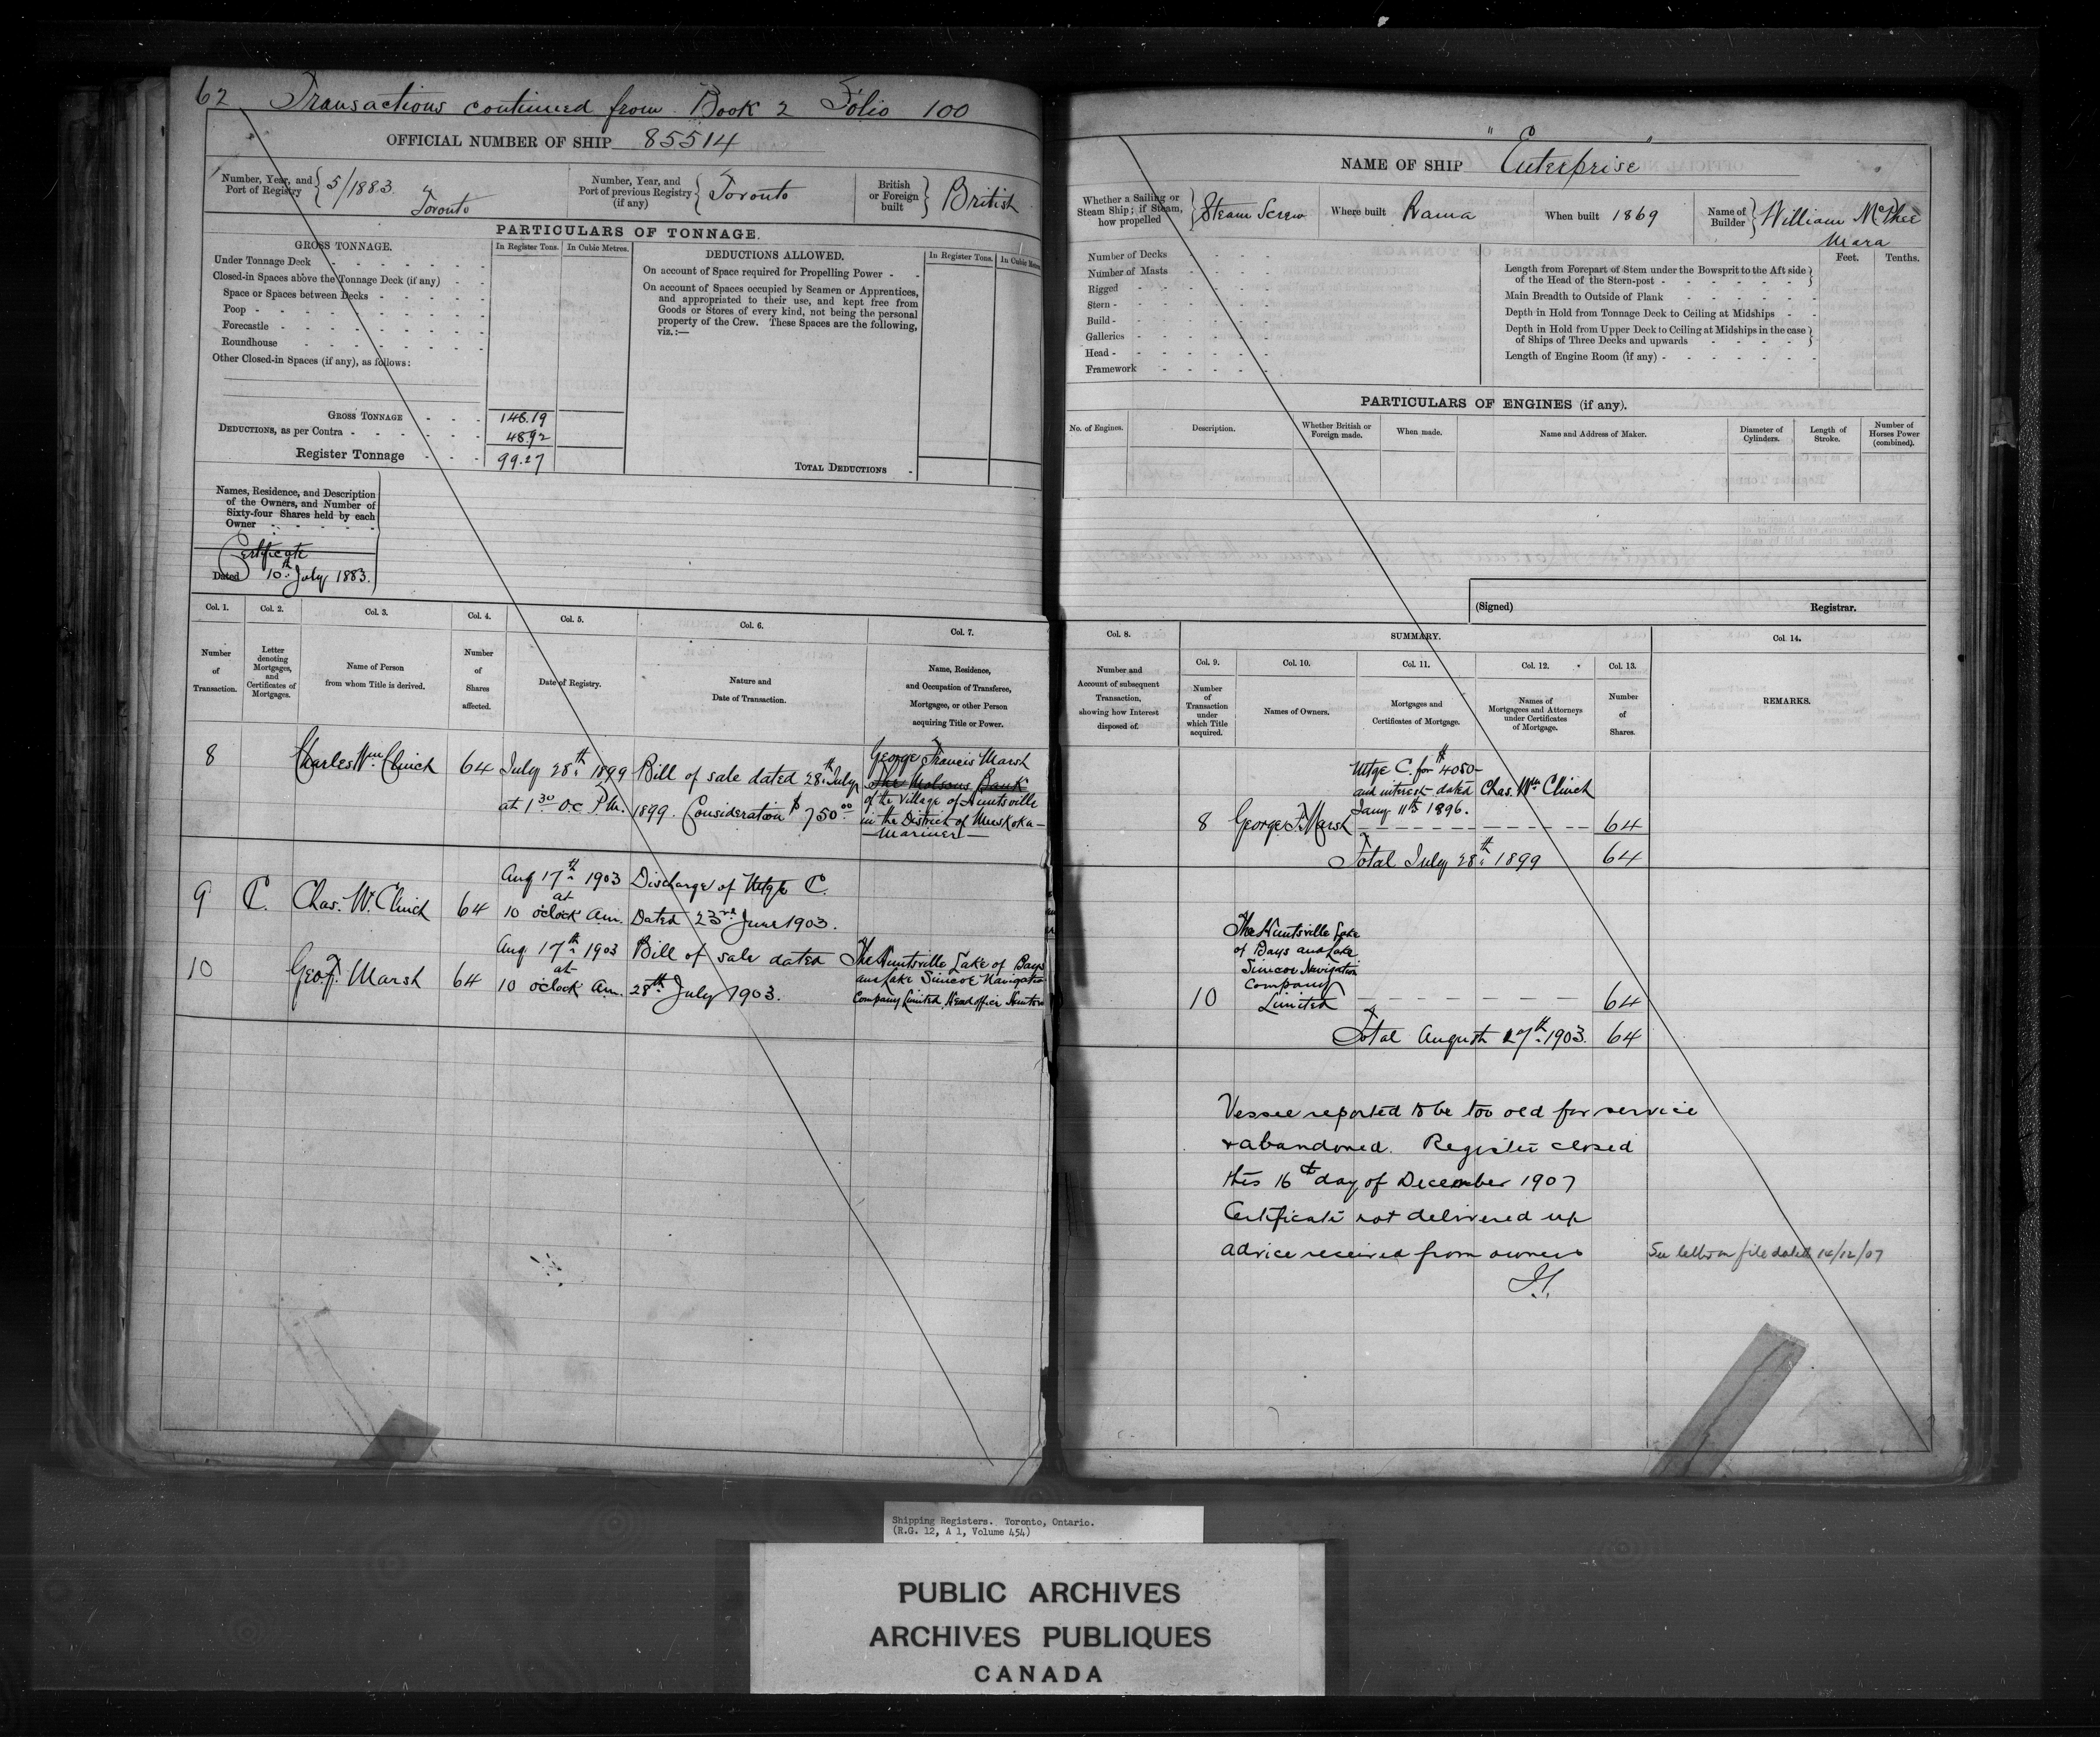 62 Transactions continued from Book 2 Folio 100
OFFICIAL NUMBER OF SHIP 85514
Number, Year, and Port of Registry { 5/1883. Toronto
Number, Year, and Port of previous Registry (if any) { Toronto
British or Foreign built } British
PARTICULARS OF TONNAGE.
GROSS TONNAGE.
In Register Tons. In Cubic Metres.
Under Tonnage Deck
Closed-in Spaces above the Tonnage Deck (if any)
Space or Spaces between Decks
Poop
Forecastle
Roundhouse
Other Closed-in Spaces (if any), as follows:
GROSS TONNAGE 148.19
DEDUCTIONS, as per Contra 48.92
Register Tonnage 99.27
DEDUCTIONS ALLOWED.
In Register Tons. In Cubic Metres.
On account of Space required for Propelling Power
On account of Spaces occupied by Seamen or Apprentices,
and appropriated to their use, and kept free from
Goods or Stores of every kind, not being the personal
property of the Crew. These Spaces are the following,
viz.:—
TOTAL DEDUCTIONS
Names, Residence, and Description
of the Owners, and Number of
Sixty-four Shares held by each
Owner
Certificate
Dated 10th July 1883.
Col. 1. Col. 2. Col. 3. Col. 4. Col. 5. Col. 6. Col. 7.
Number of Transaction.
Letter denoting Mortgages, and Certificates of Mortgages.
Name of Person from whom Title is derived.
Number of Shares affected.
Date of Registry.
Nature and Date of Transaction.
Name, Residence, and Occupation of Transferee, Mortgagee, or other Person acquiring Title or Power.
8 Charles Wm. Clinch 64 July 28th 1899 at 1 30 O.C. P.M. Bill of sale dated 28th July 1899. Consideration $750.00
George Francis Marsh
The Molsons Bank
of the Village of Huntsville
in the District of Muskoka—
—Mariner—
9 C. Chas. W. Clinch 64 Aug 17th 1903 at 10 o'clock Am. Discharge of Mtge C. Dated 23rd June 1903.
10 Geo. F. Marsh 64 Aug 17th 1903 at 10 o'clock Am. Bill of sale dated 28th July 1903.
The Huntsville Lake of Bays
and Lake Simcoe Navigation
Company Limited, Head office
NAME OF SHIP "Enterprise"
Whether a Sailing or Steam Ship; if Steam, how propelled } Steam Screw
Where built Rama
When built 1869
Name of Builder } William McPhee
Mara
Number of Decks
Number of Masts
Rigged
Stern
Build
Galleries
Head
Framework
Feet. Tenths.
Length from Forepart of Stem under the Bowsprit to the Aft side
of the Head of the Stern-post
Main Breadth to Outside of Plank
Depth in Hold from Tonnage Deck to Ceiling at Midships
Depth in Hold from Upper Deck to Ceiling at Midships in the case
of Ships of Three Decks and upwards
Length of Engine Room (if any)
PARTICULARS OF ENGINES (if any).
No. of Engines. Description. Whether British or Foreign made. When made. Name and Address of Maker. Diameter of Cylinders. Length of Stroke. Number of Horses Power (combined).
(Signed) Registrar.
Col. 8. SUMMARY. Col. 14.
Col. 9. Col. 10. Col. 11. Col. 12. Col. 13.
Number and Account of subsequent Transaction, showing how Interest disposed of.
Number of Transaction under which Title acquired.
Names of Owners.
Mortgages and Certificates of Mortgage.
Names of Mortgagees and Attorneys under Certificates of Mortgage.
Number of Shares.
REMARKS.
Mtge C. for $4050—
and interest dated Chas. Wm Clinch
Jany 11th 1896.
8 George F. Marsh 64
Total July 28th 1899 64
The Huntsville Lake
of Bays and Lake
Simcoe Navigation
Company
10 Limited 64
Total August 17th 1903. 64
Vessel reported to be too old for service
& abandoned. Register closed
this 16th day of December 1907
Certificate not delivered up
advice received from owners
See letter on file dated 14/12/07
Shipping Registers. Toronto, Ontario.
(R.G. 12, A 1, Volume 454)
PUBLIC ARCHIVES
ARCHIVES PUBLIQUES
CANADA